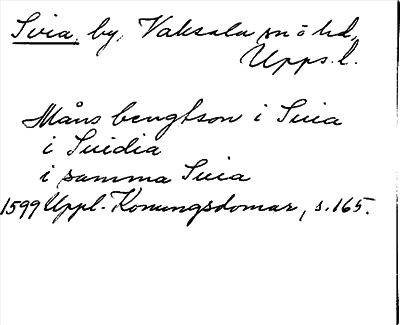 Svia, by, Vaksala sn o hd,
Upps. l.
Måns bengtson i Suia
i Suidia
i samma Suia
1599 Uppl. Konungsdomar, s. 165.